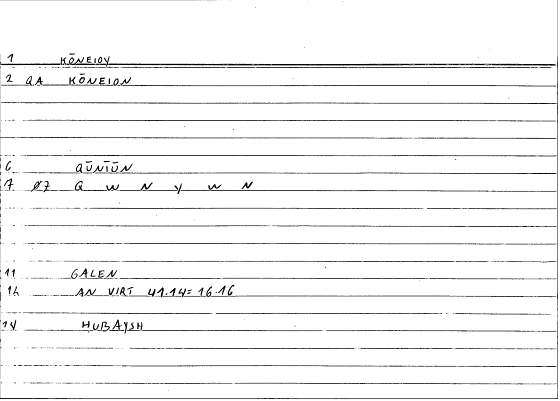 1 KŌNEIOY
2 QA KŌNEION
6 QŪNĪŪN
7 Ø7 Q W N Y W N
11 GALEN
12 AN VIRT 41.14=16.16
14 HUBAYSH